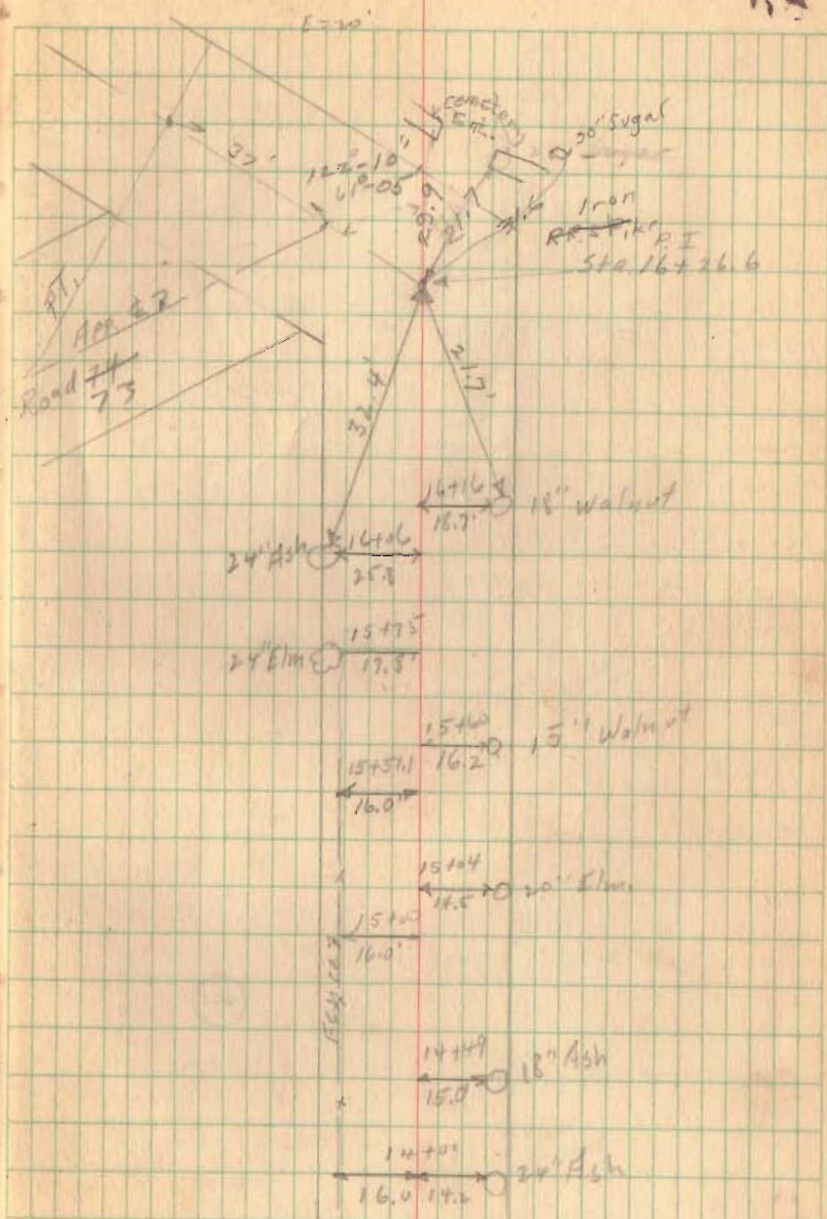 E=20'
Cemetery
Ent.
30" Sugar
32'
122°-10"
61°-05'
29.9
21.7
Iron
P.I
Sta. 16+26.6
P.T.
App. &
Road 74
73
32.4'
21.7'
16+16
18.7'
18" Walnut
24" Ash
16+06
25.8
24" Elm
15+75
17.8'
15+60
16.2
15" Walnut
15+51.1
16.0'
15+04
14.5
20" Elm.
15+00
16.0'
Fence
14+49
15.0'
18" Ash
14+00
16.0
14.2
24" Ash